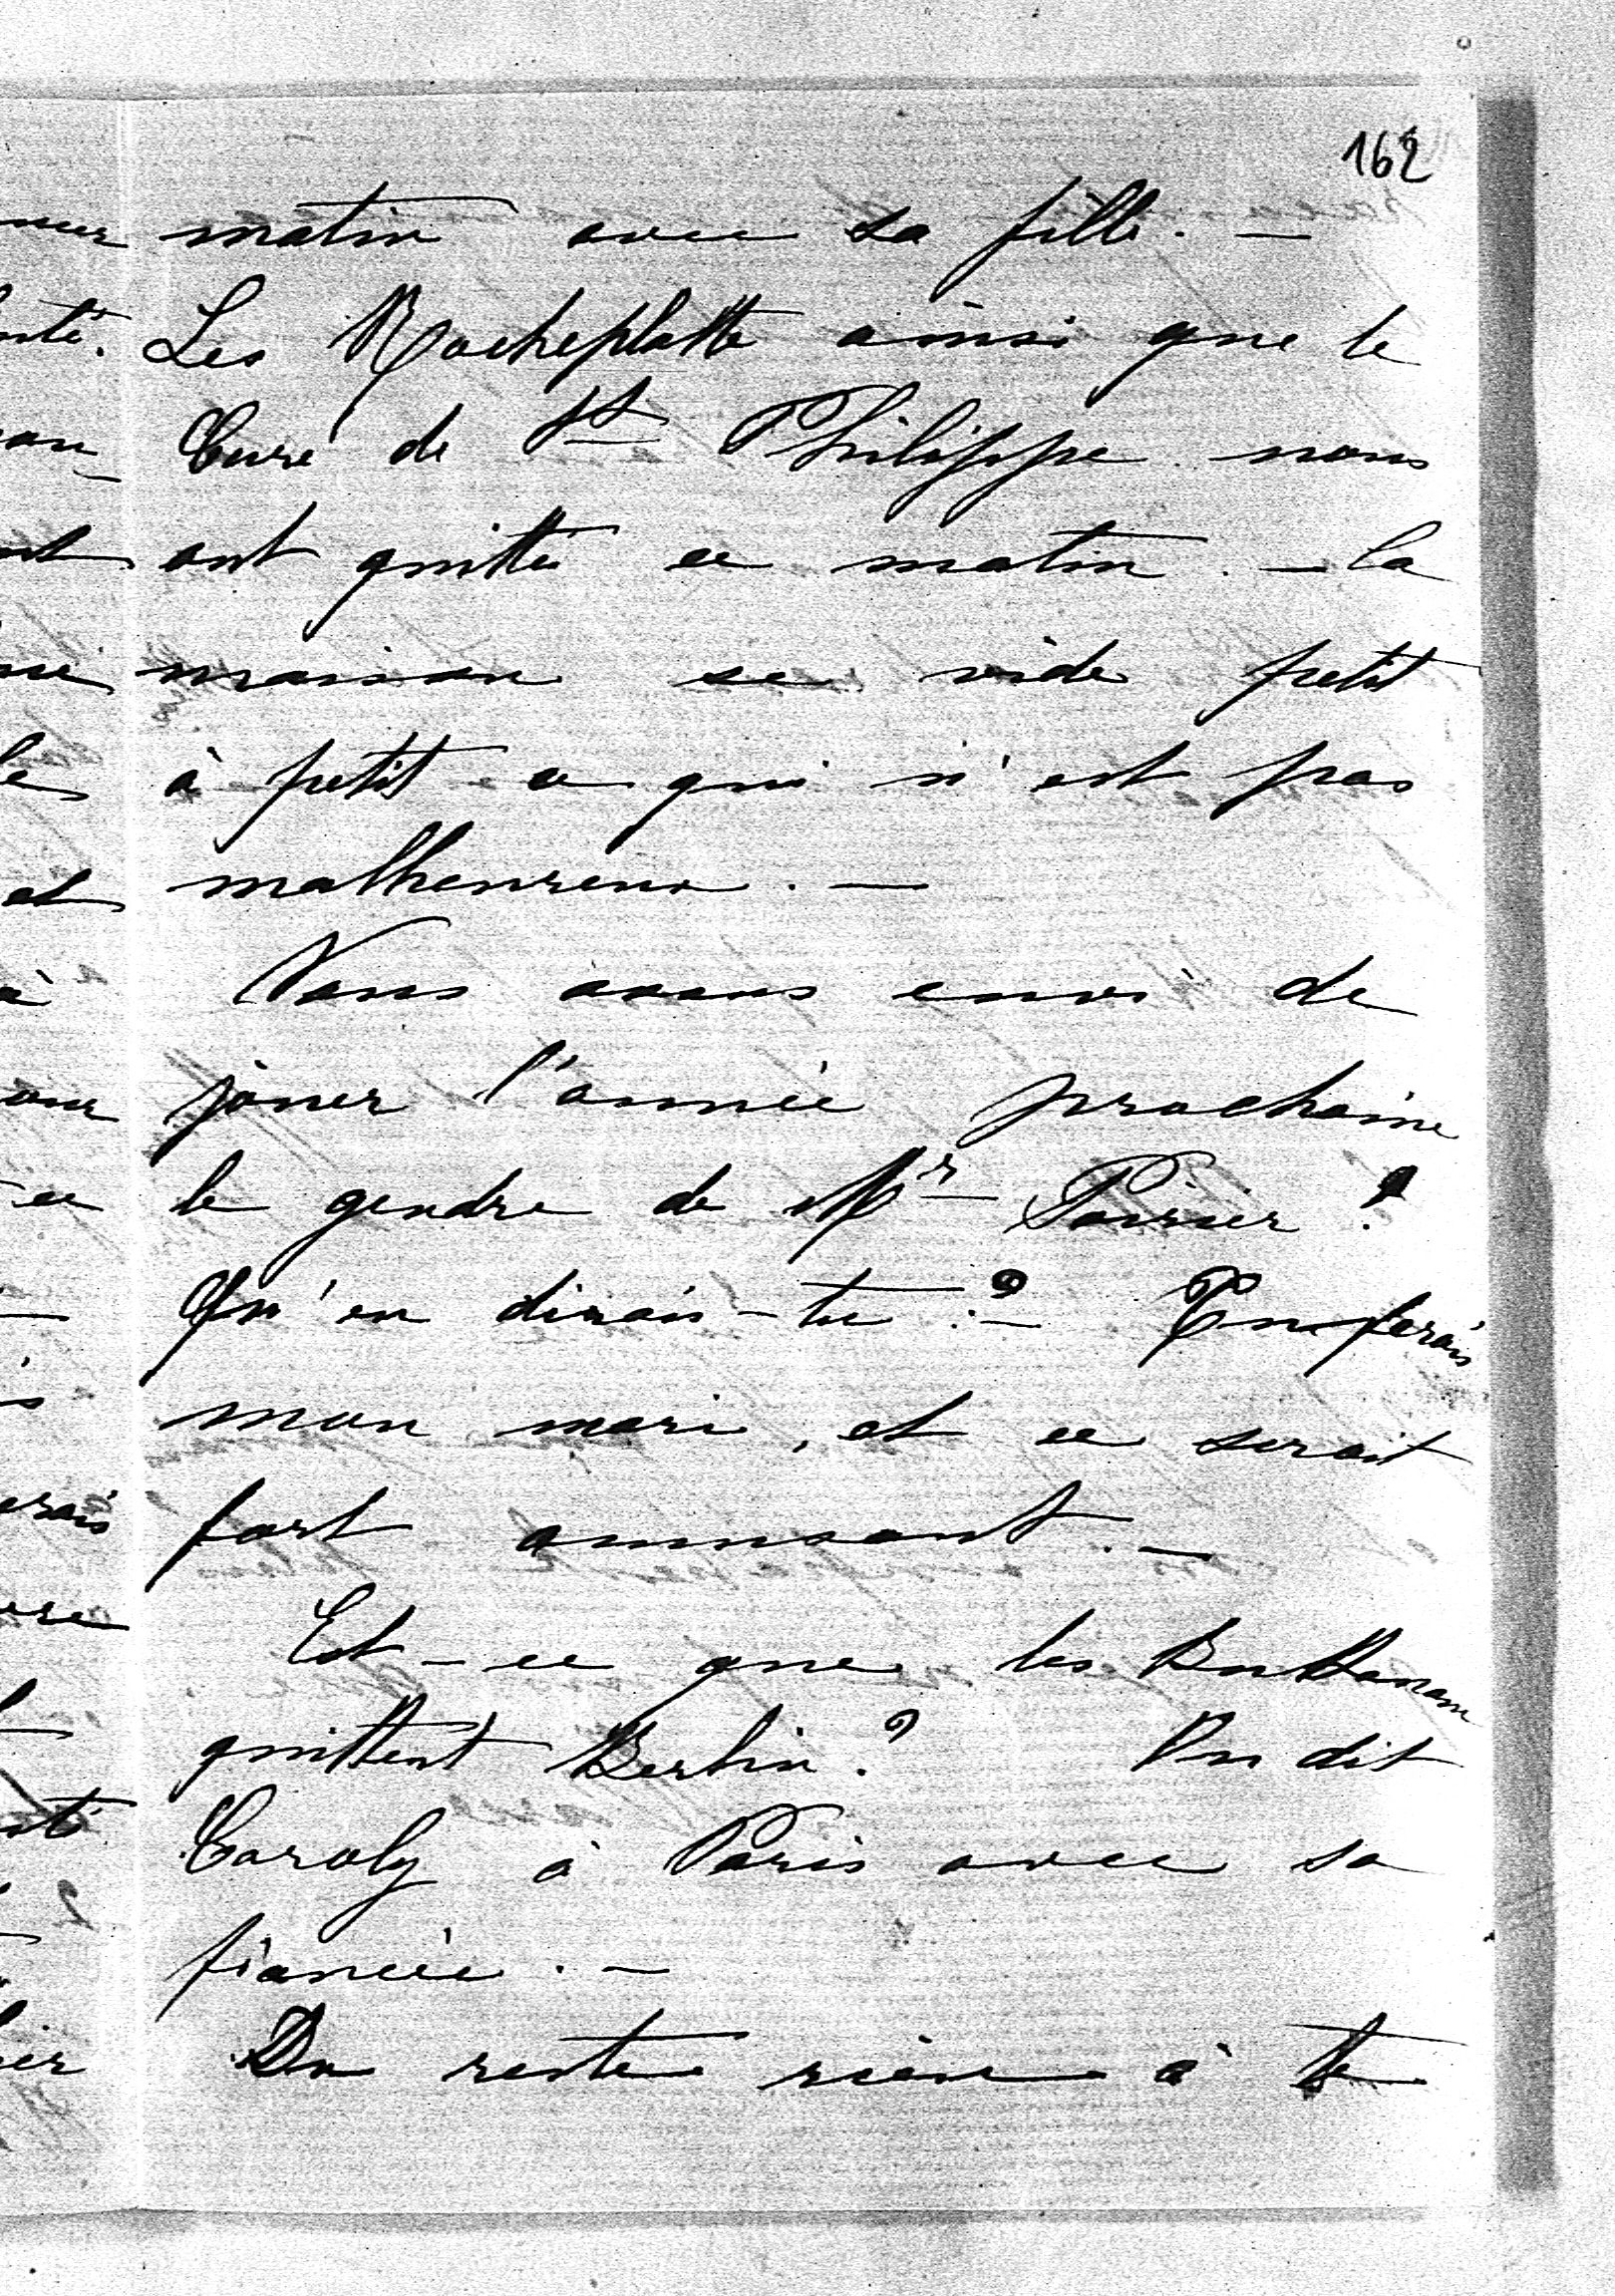 162
matin avec sa fille. —
Les Rocheplatte ainsi que le
Curé de St Philippe nous
ont quittés ce matin. — la
maison se vide petit
à petit ce qui n'est pas
malheureux. —
Nous avons envie de
jouer l'année prochaine
le gendre de Mr Poirier ?
Qu'en dirais-tu ? — Tu ferais
mon mari, et ce serait
fort amusant. —
Est-ce que les
quittent Berlin ? On dit
Caroly à Paris avec sa
fiancée. —
Du reste rien à te